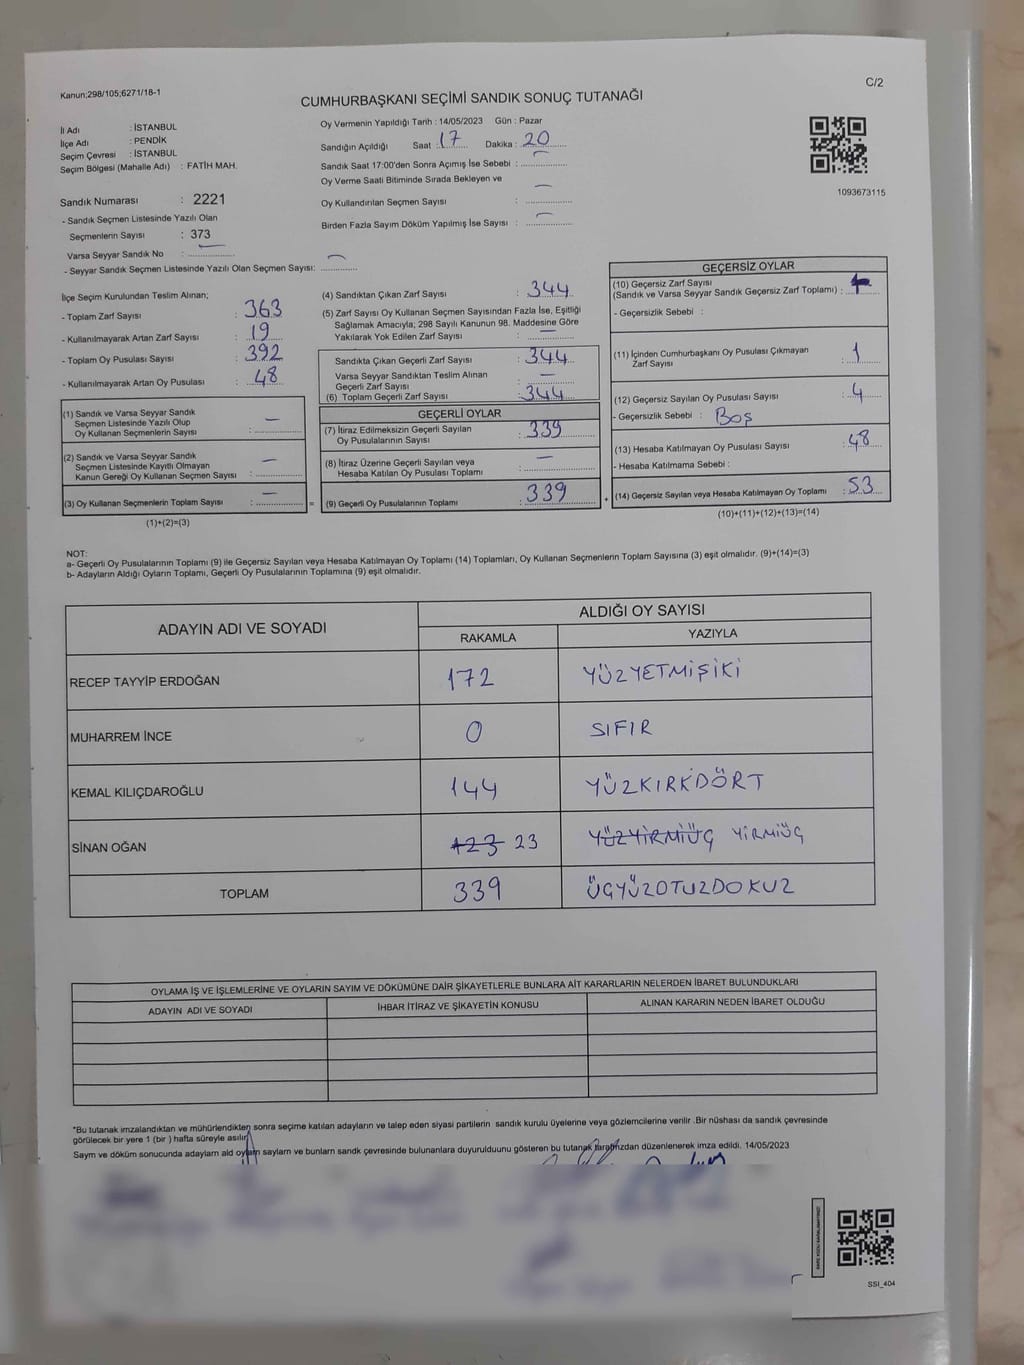 Kanun;298/105;6271/18-1
C/2
CUMHURBAŞKANI SEÇİMİ SANDIK SONUÇ TUTANAĞI
İl Adı : İSTANBUL
İlçe Adı : PENDİK
Seçim Çevresi : İSTANBUL
Seçim Bölgesi (Mahalle Adı) : FATİH MAH.
Sandık Numarası : 2221
- Sandık Seçmen Listesinde Yazılı Olan
Seçmenlerin Sayısı : 373
Varsa Seyyar Sandık No : —
- Seyyar Sandık Seçmen Listesinde Yazılı Olan Seçmen Sayısı: —
Oy Vermenin Yapıldığı Tarih : 14/05/2023 Gün : Pazar
Sandığın Açıldığı Saat : 17 Dakika : 20
Sandık Saat 17:00'den Sonra Açımış İse Sebebi : —
Oy Verme Saati Bitiminde Sırada Bekleyen ve
Oy Kullandırılan Seçmen Sayısı : —
Birden Fazla Sayım Döküm Yapılmış İse Sayısı : —
1093673115
İlçe Seçim Kurulundan Teslim Alınan;
- Toplam Zarf Sayısı : 363
- Kullanılmayarak Artan Zarf Sayısı : 19
- Toplam Oy Pusulası Sayısı : 392
- Kullanılmayarak Artan Oy Pusulası : 48
(1) Sandık ve Varsa Seyyar Sandık
Seçmen Listesinde Yazılı Olup
Oy Kullanan Seçmenlerin Sayısı : —
(2) Sandık ve Varsa Seyyar Sandık
Seçmen Listesinde Kayıtlı Olmayan
Kanun Gereği Oy Kullanan Seçmen Sayısı : —
(3) Oy Kullanan Seçmenlerin Toplam Sayısı : — =
(1)+(2)=(3)
(4) Sandıktan Çıkan Zarf Sayısı : 344
(5) Zarf Sayısı Oy Kullanan Seçmen Sayısından Fazla İse, Eşitliği
Sağlamak Amacıyla; 298 Sayılı Kanunun 98. Maddesine Göre
Yakılarak Yok Edilen Zarf Sayısı : —
Sandıkta Çıkan Geçerli Zarf Sayısı : 344
Varsa Seyyar Sandıktan Teslim Alınan
Geçerli Zarf Sayısı : —
(6) Toplam Geçerli Zarf Sayısı : 344
GEÇERLİ OYLAR
(7) İtiraz Edilmeksizin Geçerli Sayılan
Oy Pusulalarının Sayısı : 339
(8) İtiraz Üzerine Geçerli Sayılan veya
Hesaba Katılan Oy Pusulası Toplamı : —
(9) Geçerli Oy Pusulalarının Toplamı : 339 +
GEÇERSİZ OYLAR
(10) Geçersiz Zarf Sayısı
(Sandık ve Varsa Seyyar Sandık Geçersiz Zarf Toplamı) :
- Geçersizlik Sebebi :
(11) İçinden Cumhurbaşkanı Oy Pusulası Çıkmayan
Zarf Sayısı : 1
(12) Geçersiz Sayılan Oy Pusulası Sayısı : 4
- Geçersizlik Sebebi : Boş
(13) Hesaba Katılmayan Oy Pusulası Sayısı : 48
- Hesaba Katılmama Sebebi :
(14) Geçersiz Sayılan veya Hesaba Katılmayan Oy Toplamı : 53
(10)+(11)+(12)+(13)=(14)
NOT:
a- Geçerli Oy Pusulalarının Toplamı (9) ile Geçersiz Sayılan veya Hesaba Katılmayan Oy Toplamı (14) Toplamları, Oy Kullanan Seçmenlerin Toplam Sayısına (3) eşit olmalıdır. (9)+(14)=(3)
b- Adayların Aldığı Oyların Toplamı, Geçerli Oy Pusulalarının Toplamına (9) eşit olmalıdır.
ADAYIN ADI VE SOYADI
ALDIĞI OY SAYISI
RAKAMLA YAZIYLA
RECEP TAYYİP ERDOĞAN 172 YÜZYETMİŞİKİ
MUHARREM İNCE 0 SIFIR
KEMAL KILIÇDAROĞLU 144 YÜZKIRKDÖRT
SİNAN OĞAN 123 23 YÜZYİRMİÜÇ YİRMİÜÇ
TOPLAM 339 ÜÇYÜZOTUZDOKUZ
OYLAMA İŞ VE İŞLEMLERİNE VE OYLARIN SAYIM VE DÖKÜMÜNE DAİR ŞİKAYETLERLE BUNLARA AİT KARARLARIN NELERDEN İBARET BULUNDUKLARI
ADAYIN ADI VE SOYADI İHBAR İTİRAZ VE ŞİKAYETİN KONUSU ALINAN KARARIN NEDEN İBARET OLDUĞU
*Bu tutanak imzalandıktan ve mühürlendikten sonra seçime katılan adayların ve talep eden siyasi partilerin sandık kurulu üyelerine veya gözlemcilerine verilir .Bir nüshası da sandık çevresinde
görülecek bir yere 1 (bir ) hafta süreyle asılır.
Sayım ve döküm sonucunda adayların ald oyların saylarn ve bunların sandk çevresinde bulunanlara duyurulduunu gösteren bu tutanak tarafımızdan düzenlenerek imza edildi. 14/05/2023
SSİ_404